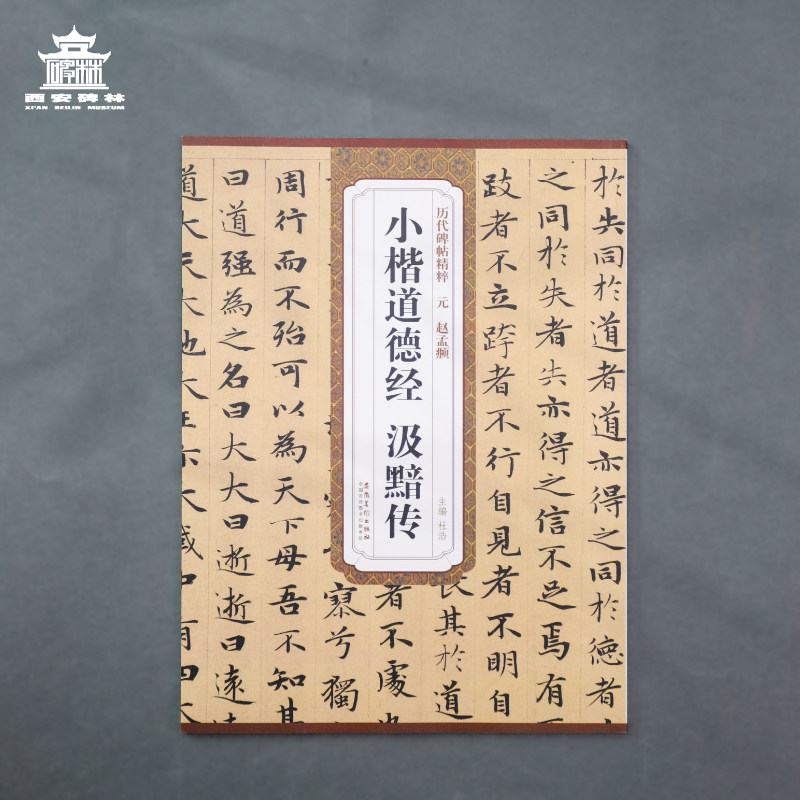 西安碑林
XI'AN BEILIN MUSEUM
历代碑帖精粹 元 赵孟頫
小楷道德经 汲黯传
主编 杜浩
安徽美术出版社
於失同於道者道亦得之同於德者
之同於失者失亦得之信不足焉有
跂者不立跨者不行自見者不明自
長其於道
者不處
寮兮獨
周行而不殆可以為天下母吾不知其
曰道強為之名曰大大曰逝逝曰遠
道大天大地大王亦大域中有四大